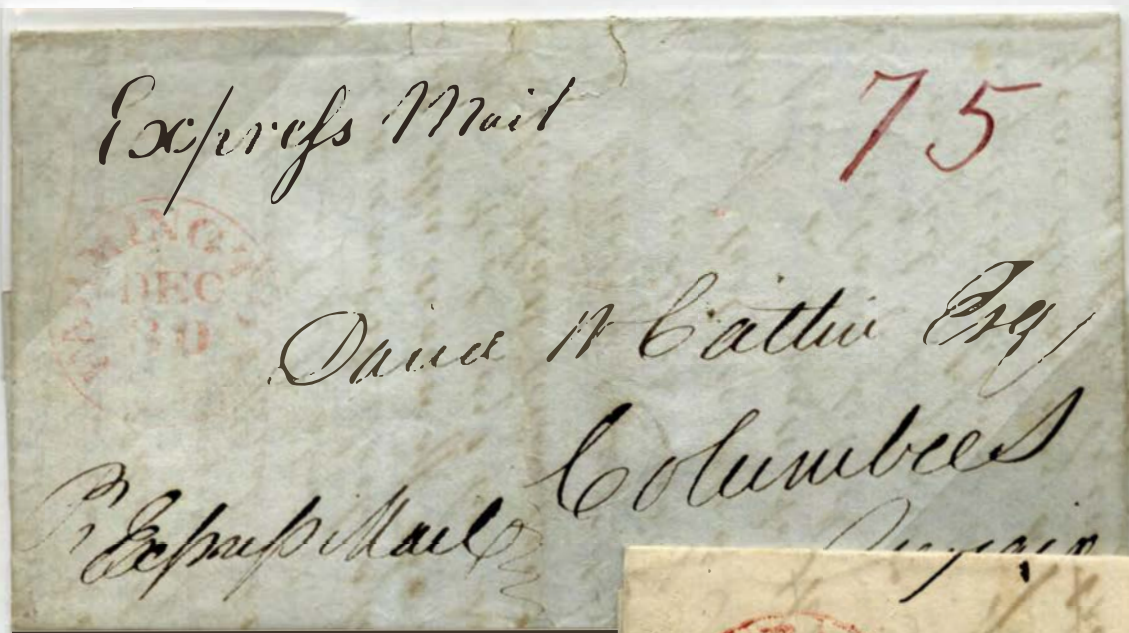 Express Mail
75
FARMINGTON
DEC
30
David W Catlin Esq
Columbus
Pr Express Mail